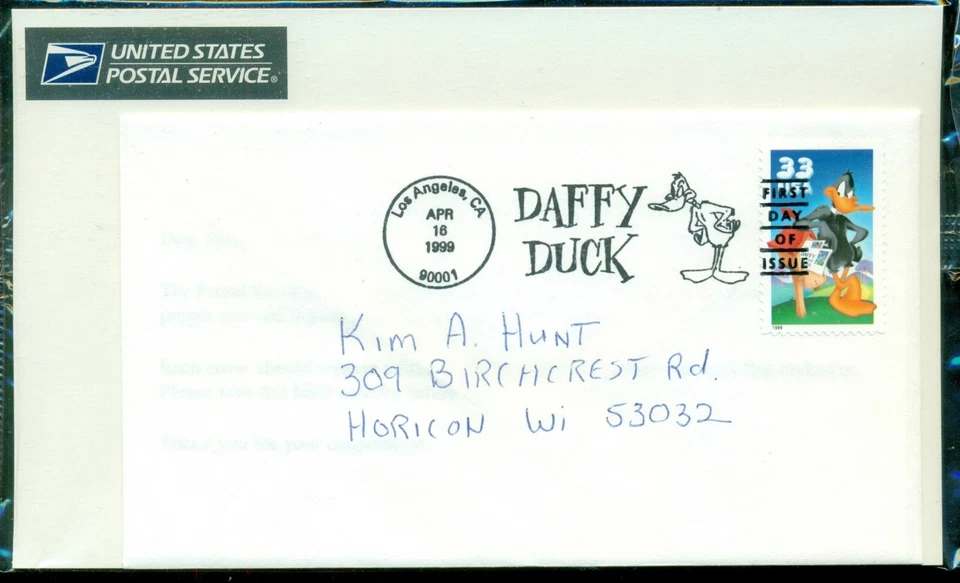 UNITED STATES
POSTAL SERVICE®
Los Angeles, CA
APR
16
1999
90001
DAFFY
DUCK
33
USA
FIRST
DAY
OF
ISSUE
1999
Kim A. HUNT
309 BIRCHCREST Rd.
HORICON Wi 53032